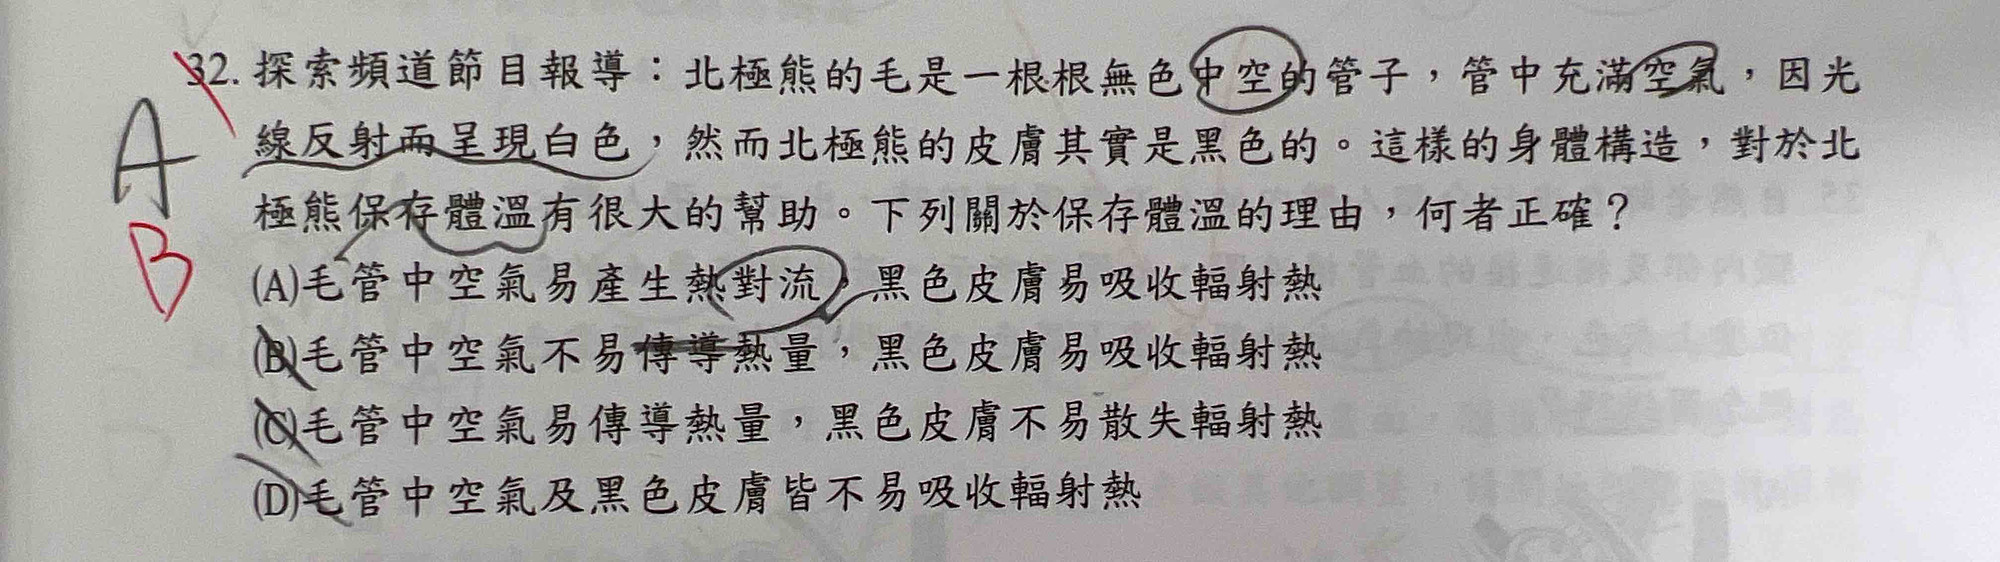 32. 探索頻道節目報導：北極熊的毛是一根根無色中空的管子，管中充滿空氣，因光
線反射而呈現白色，然而北極熊的皮膚其實是黑色的。這樣的身體構造，對於北
極熊保存體溫有很大的幫助。下列關於保存體溫的理由，何者正確？
A
B
(A)毛管中空氣易產生熱對流，黑色皮膚易吸收輻射熱
(B)毛管中空氣不易傳導熱量，黑色皮膚易吸收輻射熱
(C)毛管中空氣易傳導熱量，黑色皮膚不易散失輻射熱
(D)毛管中空氣及黑色皮膚皆不易吸收輻射熱